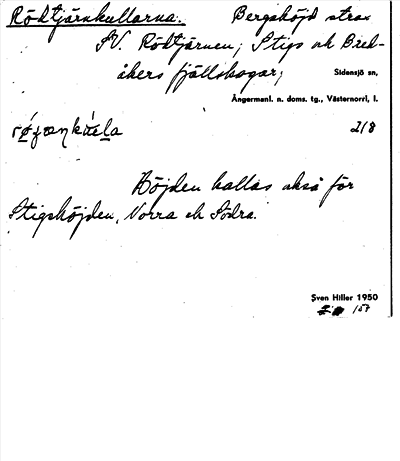 Rödtjärnkullarna. Bergshöjd strax
SV. Rödtjärnen; Stigs och Bred-
åkers fjällskogar;
Sidensjö sn,
Ångermanl. n. doms. tg., Västernorrl. l.
2/8
Höjden kallas också för
Stigshöjden, Norra och Södra.
Sven Hiller 1950
157